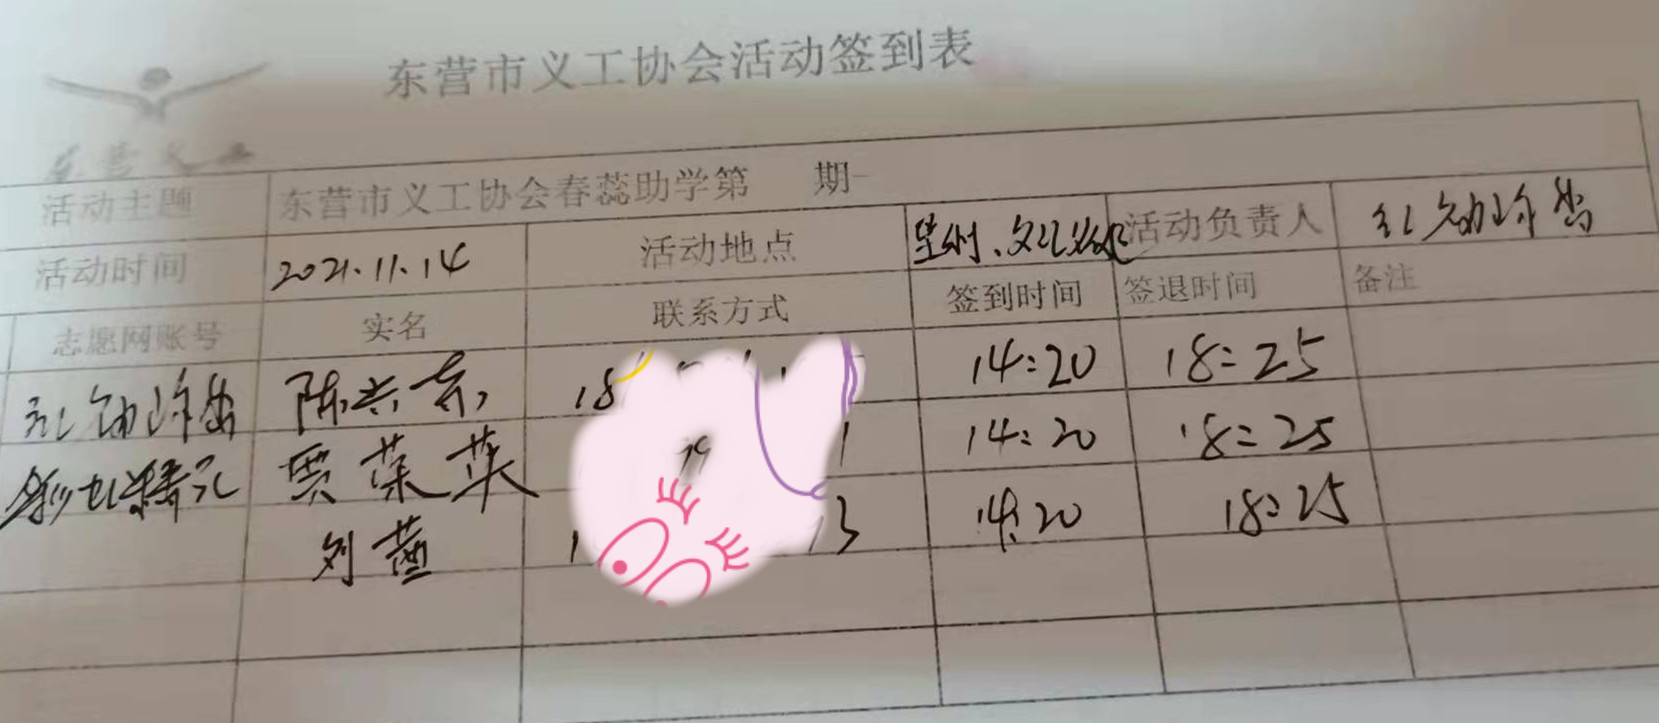 东营市义工协会活动签到表
东营义工
活动主题 东营市义工协会春蕊助学第 期
活动时间 2021.11.14 活动地点 活动负责人
志愿网账号 实名 联系方式 签到时间 签退时间 备注
陈兴东 18 14:20 18:25
贾荣英 1 14:20 18:25
刘茜 1 3 14:20 18:25